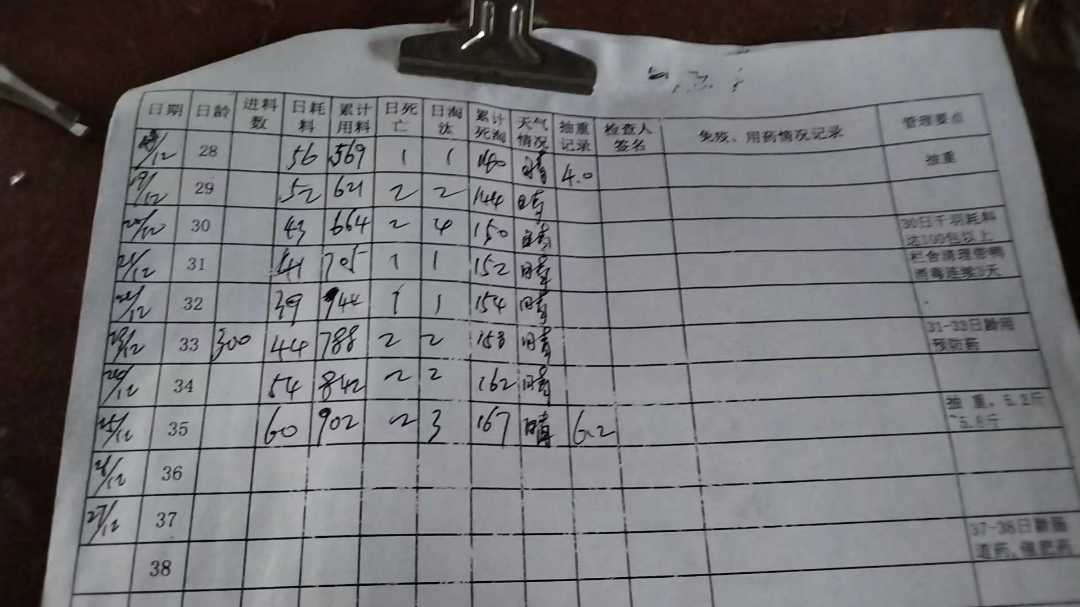 日期 日龄 进料数 日耗料 累计用料 日死亡 日淘汰 累计死淘 天气情况 抽重记录 检查人签名 免疫、用药情况记录 管理要点
18/12 28 56 569 1 1 140 晴 4.0 抽重
19/12 29 52 621 2 2 144 晴
20/12 30 43 664 2 4 150 晴 30日千羽耗料达100包以上
21/12 31 41 705 1 1 152 晴 栏舍清理带鸭消毒连续3天
22/12 32 39 744 1 1 154 晴
23/12 33 300 44 788 2 2 158 晴 31-33日龄用预防药
24/12 34 54 842 2 2 162 晴
25/12 35 60 902 2 3 167 晴 6.2 抽重，5.2斤~5.6斤
26/12 36
27/12 37 37-38日龄肠道药，催肥药
38